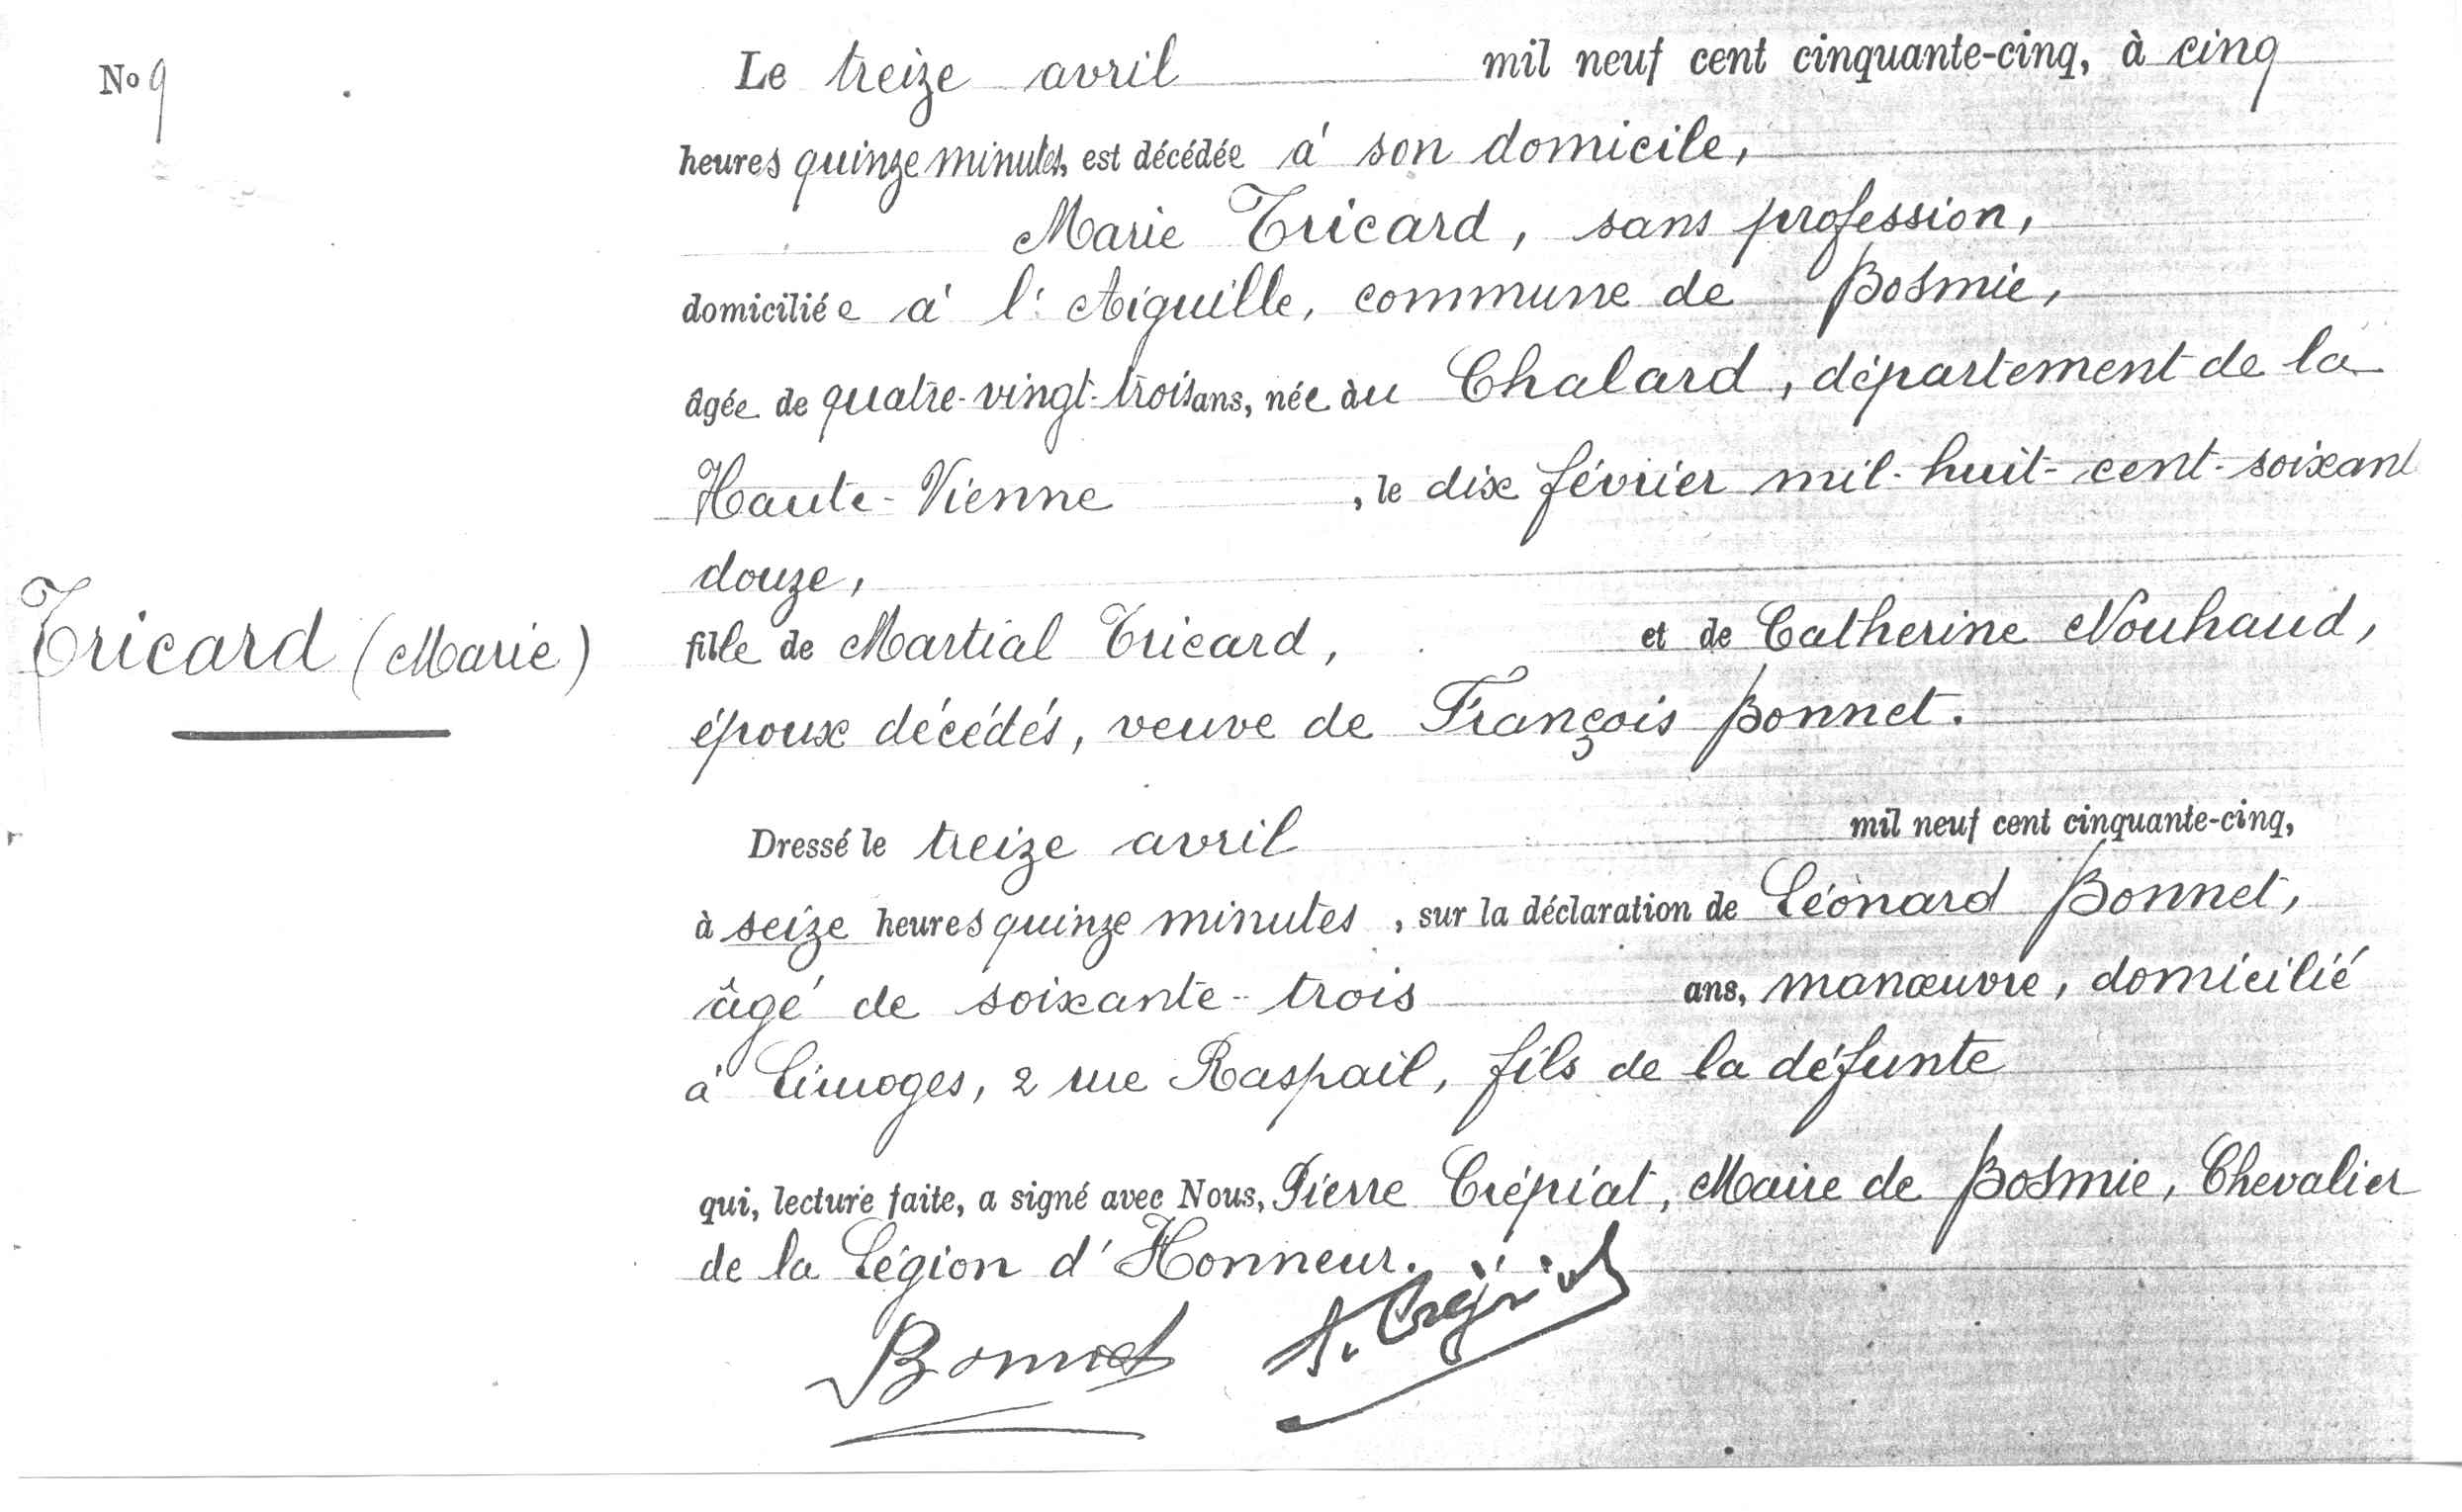 No 9
Le treize avril mil neuf cent cinquante-cinq, à cinq
heures quinze minutes, est décédée à son domicile,
Marie Tricard, sans profession,
domiciliée à l'Aiguille, commune de Bosmie,
âgée de quatre-vingt-trois ans, née au Chalard, département de la
Haute-Vienne, le dix février mil-huit-cent-soixant
douze,
Tricard (Marie)
fille de Martial Tricard, et de Catherine Nouhaud,
époux décédés, veuve de François Bonnet.
Dressé le treize avril mil neuf cent cinquante-cinq,
à seize heures quinze minutes, sur la déclaration de Léonard Bonnet,
âgé de soixante-trois ans, manœuvre, domicilié
à Limoges, 2 rue Raspail, fils de la défunte
qui, lecture faite, a signé avec Nous, Pierre Crépiat, Maire de Bosmie, Chevalier
de la Légion d'Honneur.
Bonnet